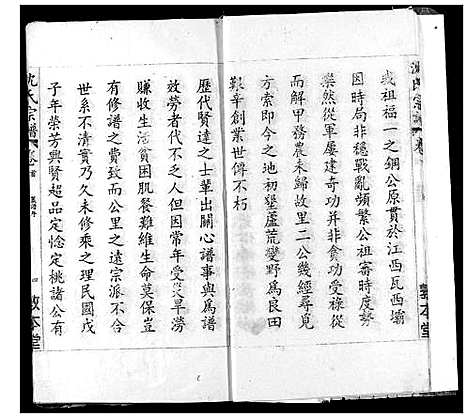 我祖福一之銅公原貫於江西瓦西壩
因時局非穩戰亂頻繁公祖審時度勢
樂然從軍屢建奇功并非貪功受祿從
而解甲務農未歸故里二公幾經尋覓
方索即今之地初墾蘆荒變野爲良田
艱辛創業世傳不朽
歷代賢達之士輩出關心譜事與爲譜
效勞者代不乏人但因常年受災旱勞
賺收生活貧困肌餐難維生命莫保豈
有修譜之費致而公里之遠宗派不合
世系不清實乃久未修乘之理民國戊
子年榮芳興賢超品定惗定桃諸公有
沈氏宗譜
卷首
四
敦本堂